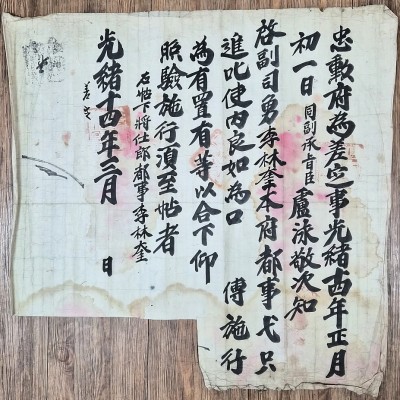 忠勳府為差定事光緒十四年正月
初一日同副承旨臣盧泳敬次知
啓副司勇李林奎本府都事弋只
進叱使內良如為口 傳施行
為有置有等以合下仰
照驗施行須至帖者
右帖下將仕郎都事李林奎
光緒十四年三月 日
差定